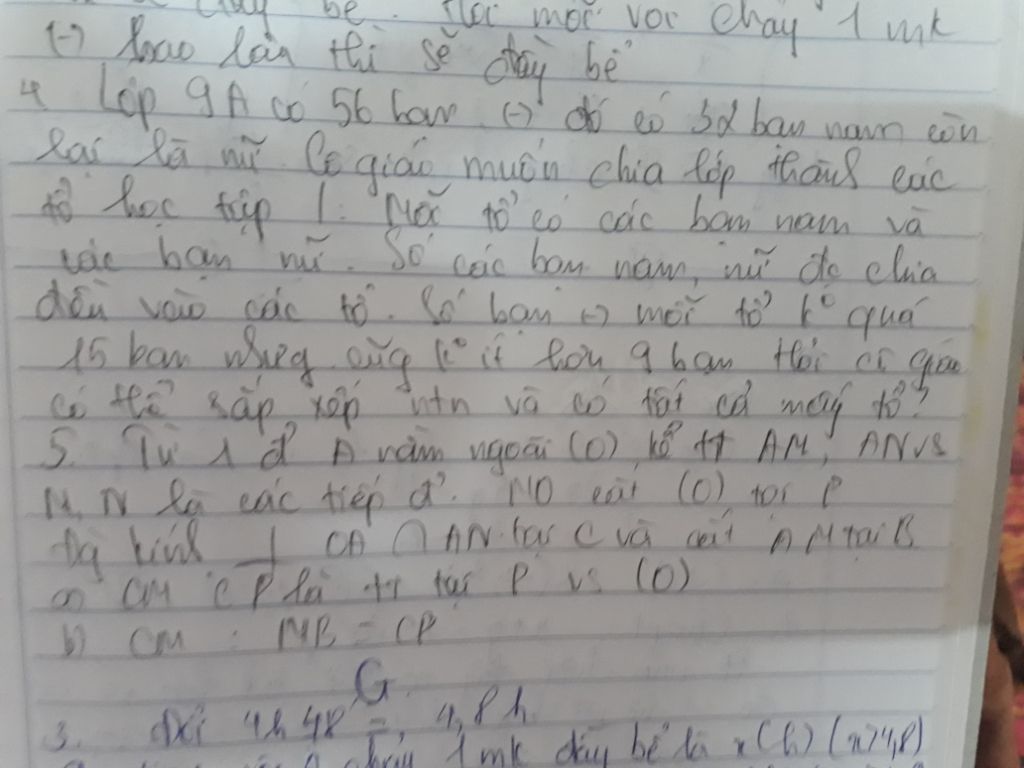 đầy bể. Hỏi mỗi vòi chảy 1 mk
(-) bao lâu thì sẽ đầy bể
4 Lớp 9A có 56 bạn (-) đó có 32 bạn nam còn
lại là nữ. Cô giáo muốn chia lớp thành các
tổ học tập. Mỗi tổ có các bạn nam và
các bạn nữ. Số các bạn nam, nữ đc chia
đều vào các tổ. Số bạn (-) mỗi tổ k° quá
15 bạn nhưg cũg k° ít hơn 9 bạn. Hỏi cô giáo
có thể sắp xếp ntn và có tất cả mấy tổ?
5. Từ 1 đ' A nằm ngoài (O), kẻ tt AM, AN vs
M, N là các tiếp đ'. MO cắt (O) tại P
Đg kính ⊥ OA ∩ AN tại C và cắt AM tại B
a) CM CP là tt tại P vs (O)
b) CM : MB = CP
G
3. Đổi 4h 48' = 4,8 h
chảy 1 mk đầy bể là x (h) (x > 4,8)